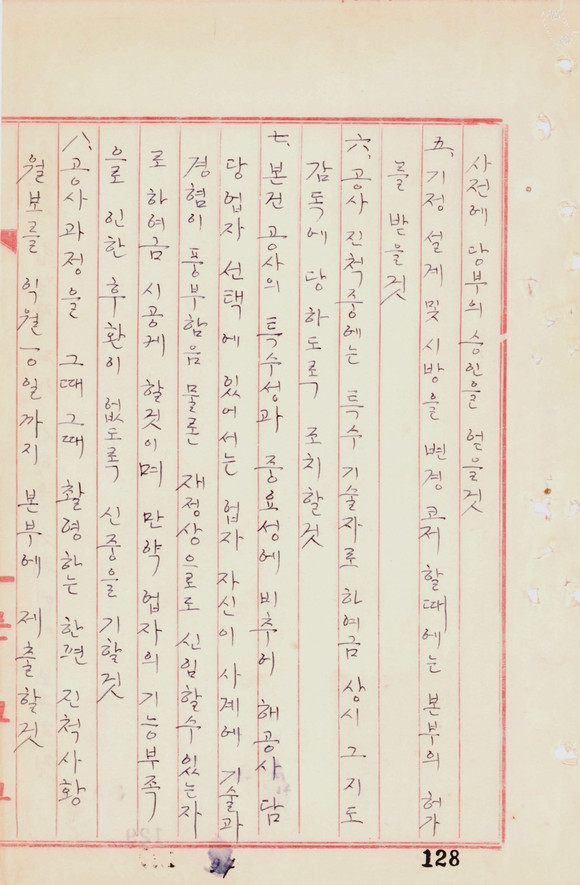 사전에 당부의 승인을 얻을것
五、기정 설계 및 시방을 변경 코저 할때에는 본부의 허가
를 받을것
六、공사 진척중에는 특수 기술자로 하여금 상시 그 지도
감독에 당하도록 조치할것
七、본건 공사의 특수성과 중요성에 비추어 해공사 담
당업자 선택에 있어서는 업자 자신이 사계에 기술과
경험이 풍부함음 물론 재정상으로도 신임할수 있는자
로 하여금 시공케 할것이며 만약 업자의 기능부족
으로 인한 후환이 없도록 신중을 기할것
八、공사과정을 그때 그때 촬영하는 한편 진척사황
월보를 익월 五일까지 본부에 제출할것
128